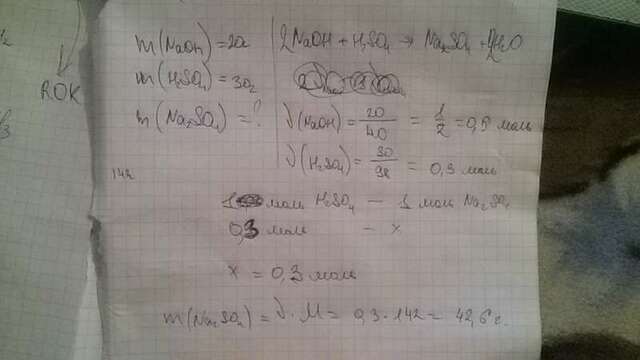 m(NaOH)=20г
2NaOH + H₂SO₄ → Na₂SO₄ + 2H₂O
m(H₂SO₄)=30г
m(Na₂SO₄)=?
ROK
ν(NaOH) = 20/40 = 1/2 = 0,5 моль
ν(H₂SO₄) = 30/98 = 0,3 моль
142
1 моль H₂SO₄ — 1 моль Na₂SO₄
0,3 моль — x
x = 0,3 моль
m(Na₂SO₄) = ν · M = 0,3 · 142 = 42,6 г.